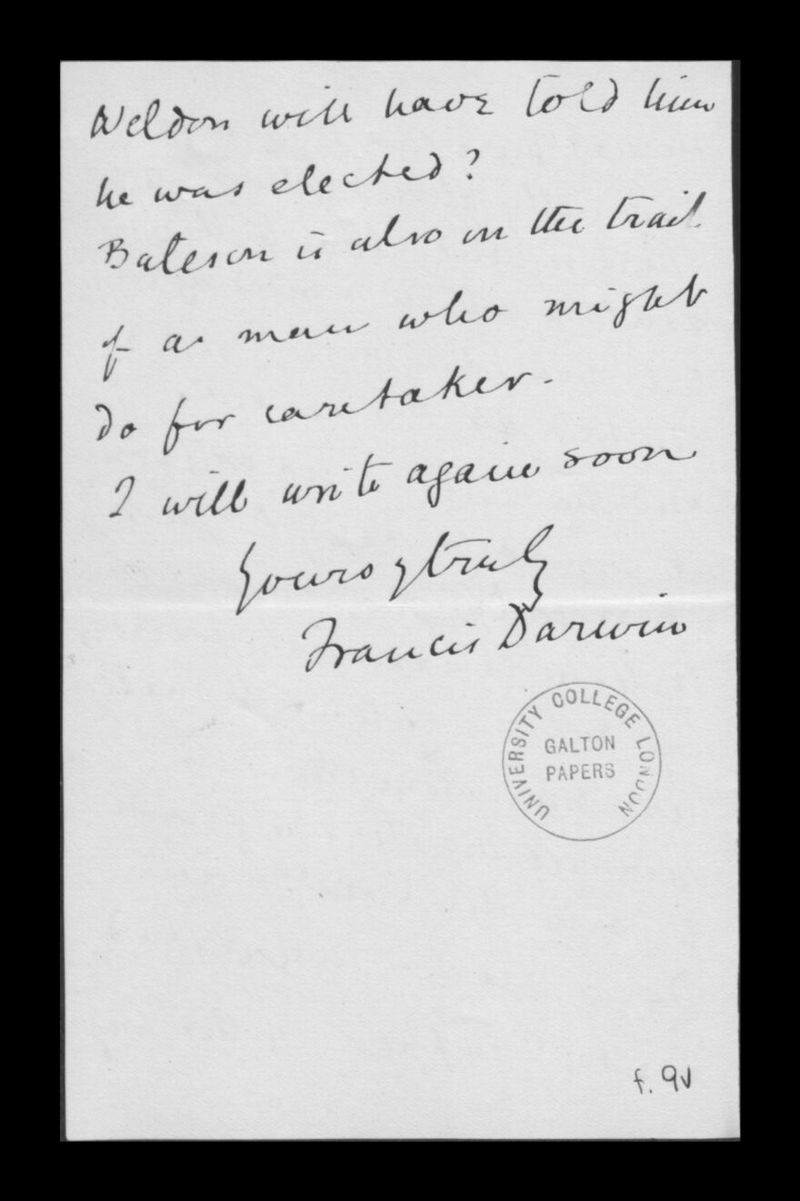 Weldon will have told him
he was elected?
Bateson is also on the trail
of a man who might
do for caretaker.
I will write again soon
Yours truly
Francis Darwin
UNIVERSITY COLLEGE LONDON
GALTON
PAPERS
f. 9v